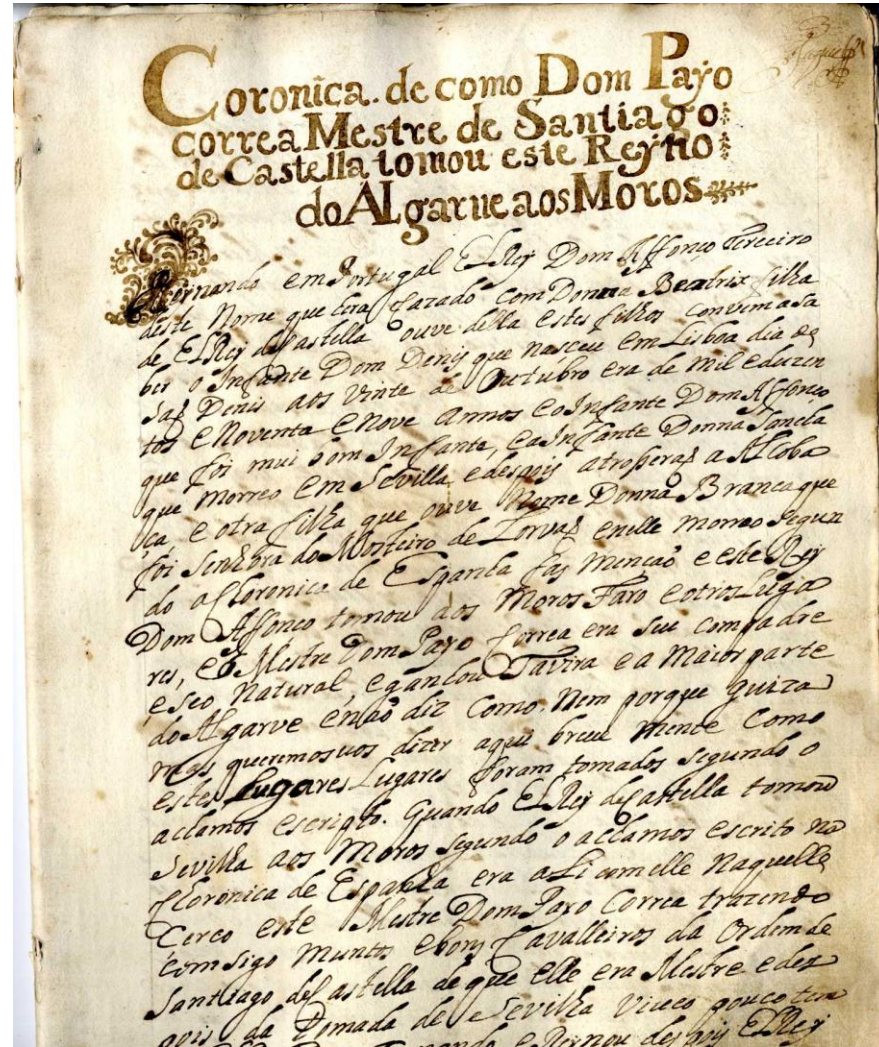 Coronica. de como Dom Payo
correa Mestre de Santiago
de Castella tomou este Reyno
do ALgarue aos Moros
Reynando em Portugal ElRey Dom Affonço Terceiro
deste Nome que Era Cazado com Donna Beatrix filha
de ElRey de Castella ouve della estes filhos convem asa
ber o Infante Dom Denis que nasceu em Lisboa dia de
Saõ Denis aos vinte de Outubro era de mil eduzen
tos eNoventa eNove annos Eo Infante Dom Affonço
que foi mui bom Infante, Ea Infante Donna Sancha
que morreo em Sevilla edespois a
ça e otra filha que ouve Nome Donna Branca que
foi Senhora do Mosteiro de Lorvaõ enelle morreo Segun
do a Coronica de Espanha faz mençaõ e este Rey
Dom Affonco tomou aos Moros Faro e otros Luga
res, E o Mestre Dom Payo Correa era seu compadre
e seo Natural, eganhou Tavira e a maior parte
do Algarve enaõ diz Como. Nem porque guiza
mas queremosvos dizer aqui breve mente Como
estes Lugares Lugares foram tomados segundo o
achamos escripto. Quando ElRey de Castella tomou
Sevilha aos Moros segundo o achamos escrito na
Coronica de Espanha era com elle Naquelle
Cerco este Mestre Dom Payo Correa trazendo
comsigo Muntos Ebons Cavalleiros da Ordem de
Santiago de Castella de que Elle era Mestre e des
pois da Tomada de Sevilha Viveo pouco tem
Fernando e Reynou despois ElRey